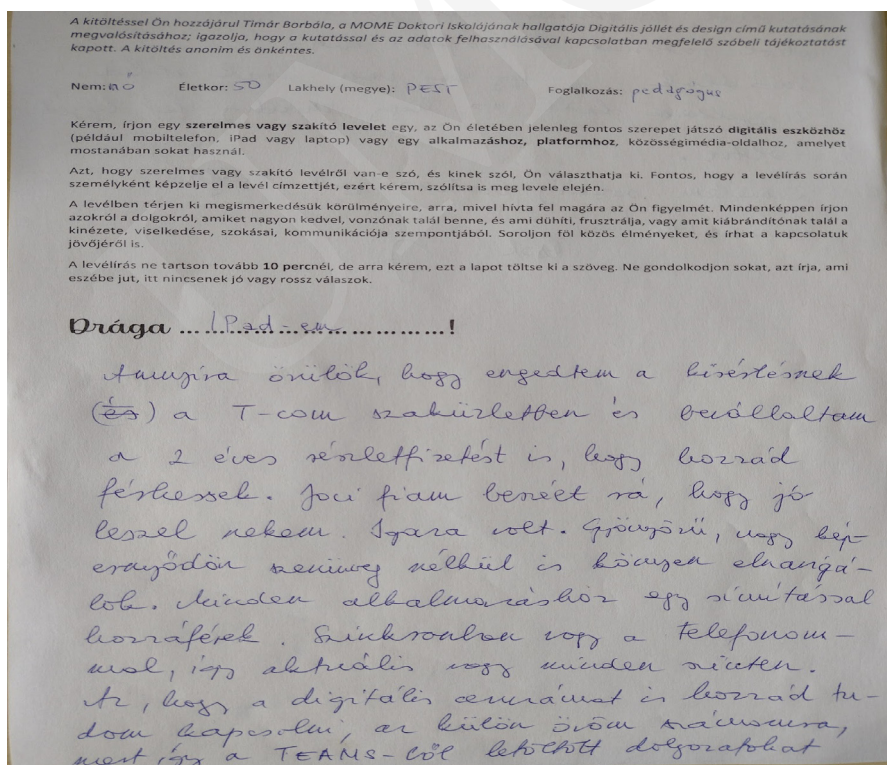 A kitöltéssel Ön hozzájárul Timár Borbála, a MOME Doktori Iskolájának hallgatója Digitális jóllét és design című kutatásának
megvalósításához; igazolja, hogy a kutatással és az adatok felhasználásával kapcsolatban megfelelő szóbeli tájékoztatást
kapott. A kitöltés anonim és önkéntes.
Nem: nő Életkor: 50 Lakhely (megye): PEST Foglalkozás: pedagógus
Kérem, írjon egy szerelmes vagy szakító levelet egy, az Ön életében jelenleg fontos szerepet játszó digitális eszközhöz
(például mobiltelefon, iPad vagy laptop) vagy egy alkalmazáshoz, platformhoz, közösségimédia-oldalhoz, amelyet
mostanában sokat használ.
Azt, hogy szerelmes vagy szakító levélről van-e szó, és kinek szól, Ön választhatja ki. Fontos, hogy a levélírás során
személyként képzelje el a levél címzettjét, ezért kérem, szólítsa is meg levele elején.
A levélben térjen ki megismerkedésük körülményeire, arra, mivel hívta fel magára az Ön figyelmét. Mindenképpen írjon
azokról a dolgokról, amiket nagyon kedvel, vonzónak talál benne, és ami dühíti, frusztrálja, vagy amit kiábrándítónak talál a
kinézete, viselkedése, szokásai, kommunikációja szempontjából. Soroljon föl közös élményeket, és írhat a kapcsolatuk
jövőjéről is.
A levélírás ne tartson tovább 10 percnél, de arra kérem, ezt a lapot töltse ki a szöveg. Ne gondolkodjon sokat, azt írja, ami
eszébe jut, itt nincsenek jó vagy rossz válaszok.
Drága ... iPad-em ...!
Annyira örülök, hogy engedtem a kísértésnek
(és) a T-com szaküzletben és bevállaltam
a 2 éves részletfizetést is, hogy hozzád
férkessek. Joci fiam beszélt rá, hogy jó
leszel nekem. Igaza volt. Gyönyörű, nagy kép-
ernyődön szemüveg nélkül is könnyen elnavigá-
lok. Minden alkalmazáshoz egy simítással
hozzáférek. Szinkronban vagy a telefonom-
mal, így aktuális vagy minden szinten.
Az, hogy a digitális ceruzámat is hozzád tu-
dom kapcsolni, az külön öröm számomra,
mert így a TEAMS-ből letöltött dolgozatokat